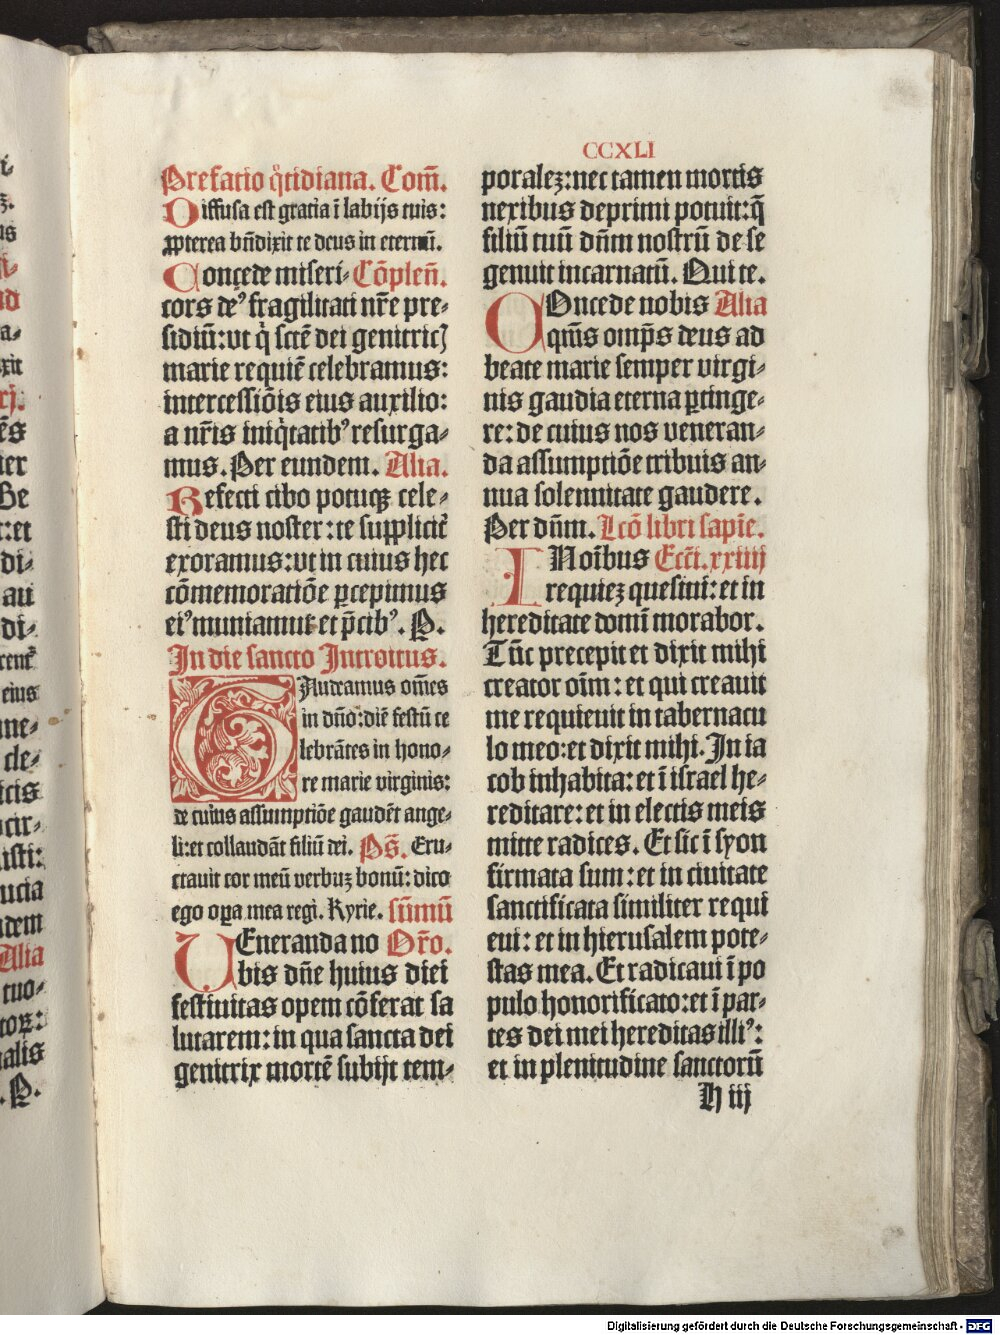 CCXLI
Prefatio q̊tidiana. Com̄.
Diffusa est gratia ī labijs tuis:
ꝓpterea bn̄dixit te deus in eternū.
Concede miseri⸗ Cōplen̄.
cors deꝰ fragilitati nr̄e pre⸗
sidiū: vt q̇ sctē dei genitric̄
marie requiē celebramus:
intercessiōis eius auxilio:
a nr̄is iniq̇tatibꝰ resurga⸗
mus. Per eundem. Alia.
Refecti cibo potuqꝫ cele⸗
sti deus noster: te supplicit̄
exoramus: vt in cuius hec
cōmemoratiōe ꝑcepimus
eiꝰ muniamur et p̄cibꝰ. P.
In die sancto Introitus.
GAudeamus om̄es
in dn̄o: diē festū ce
lebrātes in hono⸗
re marie virginis:
de cuius assumptiōe gaudēt ange⸗
li: et collaudāt filiū dei. Ps̄. Eru⸗
ctauit cor meū verbuꝫ bonū: dico
ego oꝑa mea regi. Kyrie. sūmū
VEneranda no Or̄o.
bis dn̄e huius diei
festiuitas opem cōferat sa
lutarem: in qua sancta dei
genitrix mortē subijt tem⸗
poraleꝫ: nec tamen mortis
nexibus deprimi potuit: q̄
filiū tuū dn̄m nostrū de se
genuit incarnatū. Qui te.
COncede nobis Alia
qm̄s omp̄s deus ad
beate marie semper virgi⸗
nis gaudia eterna ꝑtinge⸗
re: de cuius nos veneran⸗
da assumptiōe tribuis an⸗
nua solennitate gaudere.
Per dn̄m. Lcō libri sapīe.
IN oībus Ecc̄i. xxiiij
requieꝫ quesiui: et in
hereditate domī morabor.
Tūc precepit et dixit mihi
creator oīm: et qui creauit
me requieuit in tabernacu
lo meo: et dixit mihi. In ia
cob inhabita: et ī israel he⸗
reditare: et in electis meis
mitte radices. Et sic ī syon
firmata sum: et in ciuitate
sanctificata similiter requi
eui: et in hierusalem pote⸗
stas mea. Et radicaui ī po
pulo honorificato: et ī par⸗
tes dei mei hereditas illiꝰ:
et in plenitudine sanctorū
H iij
Digitalisierung gefördert durch die Deutsche Forschungsgemeinschaft - DFG